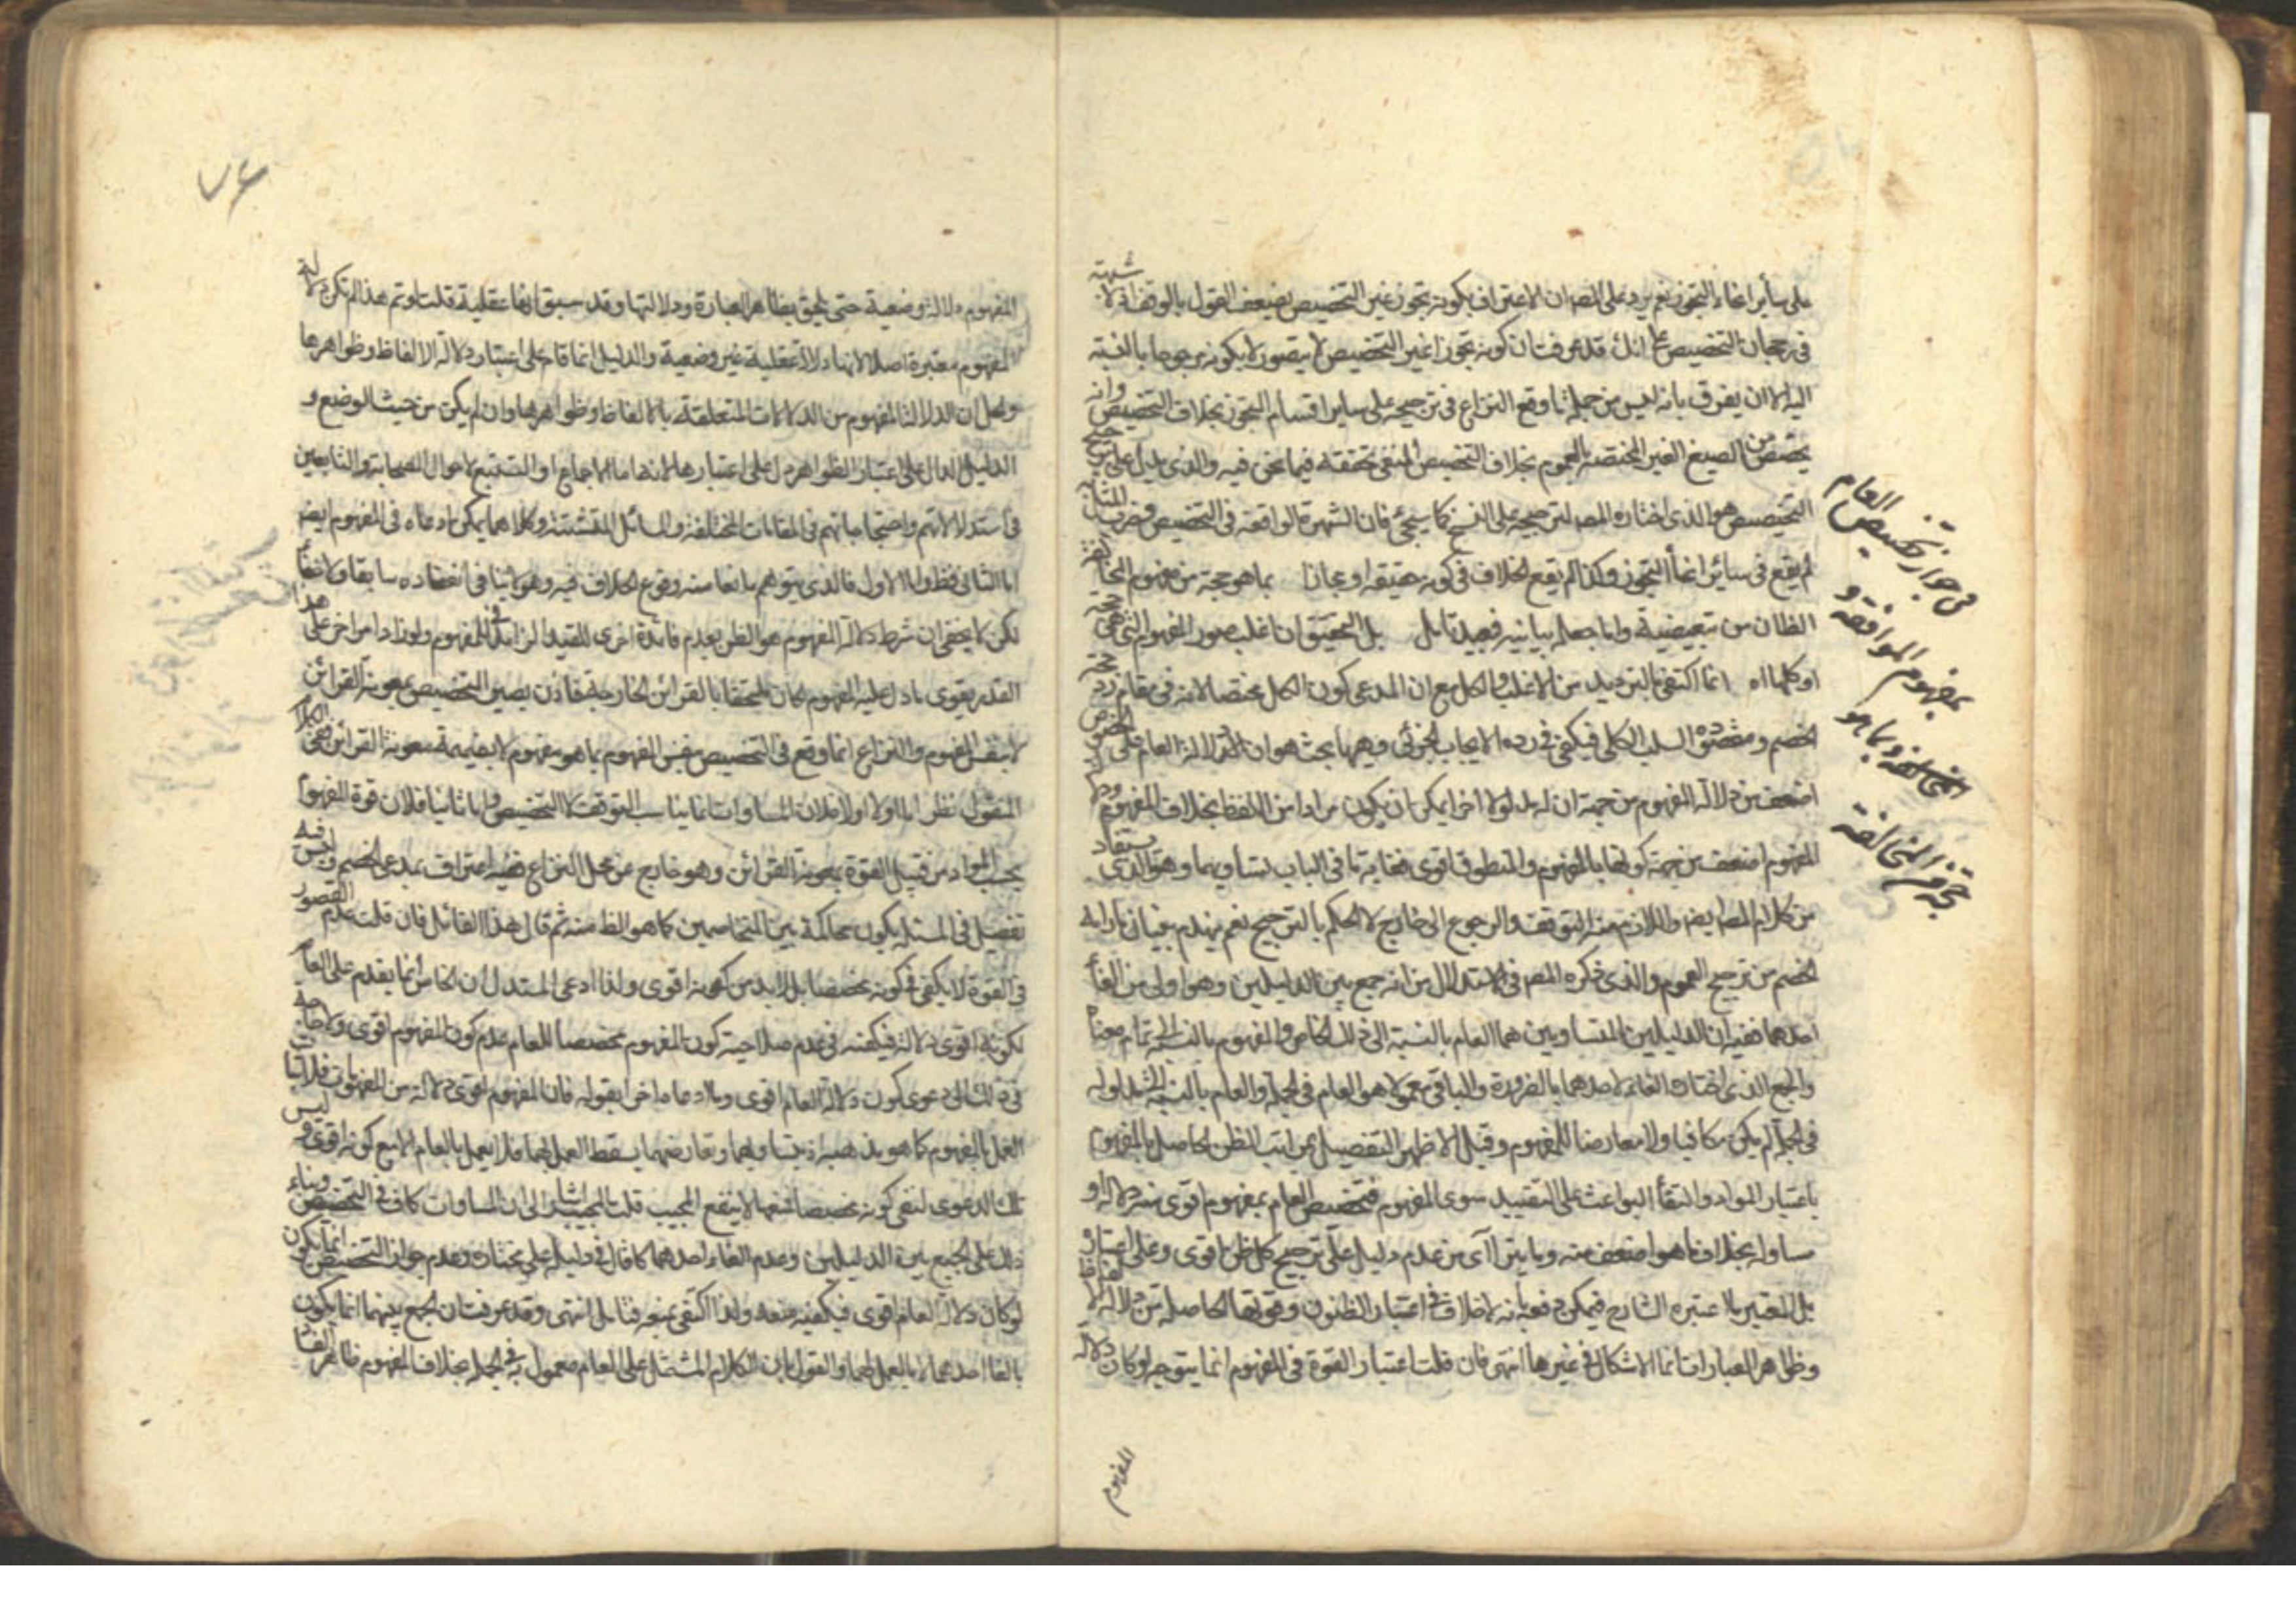 على سائر انحاء التجوز نعم يرد على المص ان الاعتراف بكونه تجوز غير التخصيص يضعف القول بالوقف اذ لا شبهة
في رجحان التخصيص على انك قد عرفت ان كونه تجوزا غير التخصيص لا يتصور لا بكونه مرجوحا بالنسبة
اليه الا ان يفرق بانه ليس من جملة ما وقع النزاع في ترجيحه على ساير اقسام التجوز بخلاف التخصيص وانه
يختص من الصيغ الغير المختصة بالعموم بخلاف التخصيص المنفي تحققه فيما نحن فيه والذي يدل على ترجيح
التخصيص هو الذي اختاره المص لترجيحه على النسخ كما سيجئ فان الشهرة الواقعة في التخصيص وضرب المثل
لم يقع في سائر انحاء التجوز وكذا لم يقع الخلاف في كونه حقيقة او مجازا بما هو حجة من مفهوم المخالفة
الظ ان من تبعيضية واما جعله بيانية فبعيد تامل بل التحقيق ان اغلب صور المفهوم التي هي حجة
او كلها اه انما اكتفى بالترديد من الاغلب والكل مع ان المدعى كون الكل مخصصا لانه في مقام رد حجة
الخصم ومقصوده السلب الكلي فيكفي في رده الايجاب الجزئي وههنا بحث هو ان دلالة العام على الخصوص
اضعف من دلالة المفهوم من جهة ان له مدلولا اخر يمكن ان يكون مرادا من اللفظ بخلاف المفهوم ودلالة
المفهوم اضعف من جهة كونها بالمفهوم والمنطوق اقوى فغاية ما في الباب تساويهما وهو الذي يستفاد
من كلام المص ايضا واللازم منه التوقف والرجوع الى خارج لا الحكم بالترجيح نعم يهدم بنيان ما رامه
الخصم من ترجيح العموم والذي ذكره المص في الاستدلال من انه جمع بين الدليلين وهو اولى من الغاء
احدهما ففيه ان الدليلين المتساويين هما العام بالنسبة الى ذلك الخاص والمفهوم بالنسبة الى تمام معناه
والجمع الذي اختاره الغاء لاحدهما بالضرورة والباقي معمولا هو العام في الجملة والعام بالنسبة الى مدلوله
في الجملة لم يكن مكافيا ولا معارضا للمفهوم وقيل الاظهر التفصيل بمراتب الظن الحاصل بالمفهوم
باعتبار المواد والتقاء البواعث على التقييد سوى المفهوم فتخصيص العام بمفهوم اقوى منه دلالة او
مساو له بخلاف ما هو اضعف منه وما يتراآى من عدم دليل على ترجيح كل ظن اقوى وعلى اعتباره
بل المعتبر ما اعتبره الشارع فيمكن دفعه بانه لا خلاف في اعتبار الظنون وقوتها الحاصلة من دلالة الالفاظ
وظاهر العبارات انما الاشكال في غيرها انتهى فان قلت اعتبار القوة في المفهوم انما يتوجه لو كان دلالة
المفهوم
في جواز تخصيص العام
بمفهوم الموافقة و
بما هو
حجة من المخالفة
٧۶
المفهوم دلالة وضعية حتى يلحق بظاهر العبارة ودلالتها وقد سبق انها عقلية قلت لو تم هذا لم تكن دلالة
المفهوم معتبرة اصلا لانها دلالة عقلية غير وضعية والدليل انما قام على اعتبار دلالة الالفاظ وظواهرها
ولعل ان الدلالة المفهوم من الدلالات المتعلقة بالالفاظ وظواهرها وان لم يكن من حيث الوضع و
الدليل الدال على اعتبار الظواهر دل على اعتبارها لانه اما الاجماع او التتبع لاحوال الصحابة والتابعين
في استدلالاتهم واحتجاجاتهم في المقامات المختلفة والمسائل المتشتتة وكلاهما يمكن ادعاه في المفهوم ايض
اما الثاني فظ واما الاول فالذي يتوهم مانعا منه وقوع الخلاف فيه وهو لا ينافي انعقاده سابقا ولاحقا
لكن لا يخفى ان شرط دلالة المفهوم هو الظن بعدم فائدة اخرى للقيد الزائد في المفهوم ولو زاد امر اخر على هذا
القدر يقوى ما دل عليه المفهوم لكان ملحقا بالقرائن الخارجة فاذن يصير التخصيص بمعونة القرائن
لا بنفس المفهوم والنزاع انما وقع في التخصيص بنفس المفهوم بما هو مفهوم لا بضميمة معونة القرائن
المنقول نظر اما اولا فلان المساوات انما يناسب التوقف لا التخصيص واما ثانيا فلان قوة المفهوم
بحسب المواد من قبيل القوة بمعونة القرائن وهو خارج عن محل النزاع ففيه اعتراف بمدعى الخصم وليس فيه
تفصيل في المسئلة يكون محاكمة بين المتخاصمين كما هو الظ منه ثم قال هذا القائل فان قلت عدم القصور
في القوة لا يكفي في كونه مخصصا بل لابد من كونه اقوى ولذا ادعى المستدل ان الخاص انما يقدم على العام
لكونه اقوى دلالة فيكفيه في عدم صلاحية كون المفهوم مخصصا للعام عدم كون المفهوم اقوى ولا حاجة
في ذلك الى دعوى كون دلالة العام اقوى وما ادعاه اخر بقوله فان المفهوم اقوى دلالة من المفهوم
العمل بالمفهوم كما هو مذهبه اذ بتساويهما وتعارضهما يسقط العمل بهما فلا يعمل بالعام الا مع كونه اقوى وليس
تلك الدعوى لنفي كونه مخصصا فمنعها لا ينفع المجيب قلت المجيب اشار الى ان المساوات كاف في التخصيص وبناء
ذلك على الجمع بين الدليلين وعدم الغاء احدهما كما قال في دليله على مختاره وعدم جواز التخصيص انما يكون
لو كان دلالة العام اقوى فيكفيه منعه ولذا اكتفى بمنعه فتامل انتهى وقد عرفت ان الجمع بينهما انما يكون
بالغاء احدهما لا بالعمل بهما والقول بان الكلام المشتمل على العام معمول به في الجملة بخلاف المفهوم